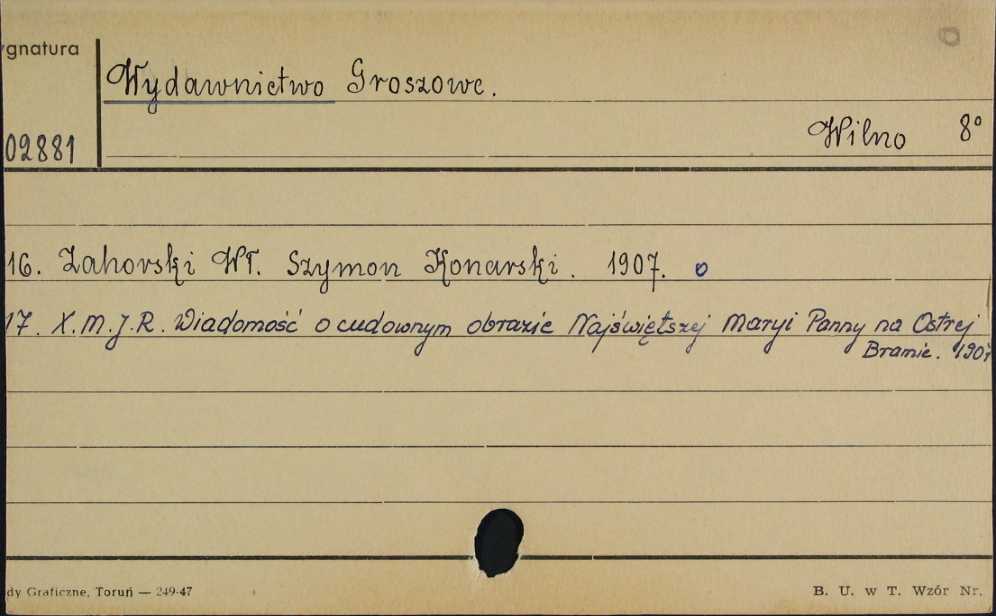 ygnatura
Wydawnictwo Groszowe.
Wilno 8°
02881
16. Zahorski Wł. Szymon Konarski. 1907. o
17. X.M.J.R. Wiadomość o cudownym obrazie Najświętszej Maryi Panny na Ostrej
Bramie. 1907
dy Graficzne, Toruń — 249-47
B. U. w T. Wzór Nr.